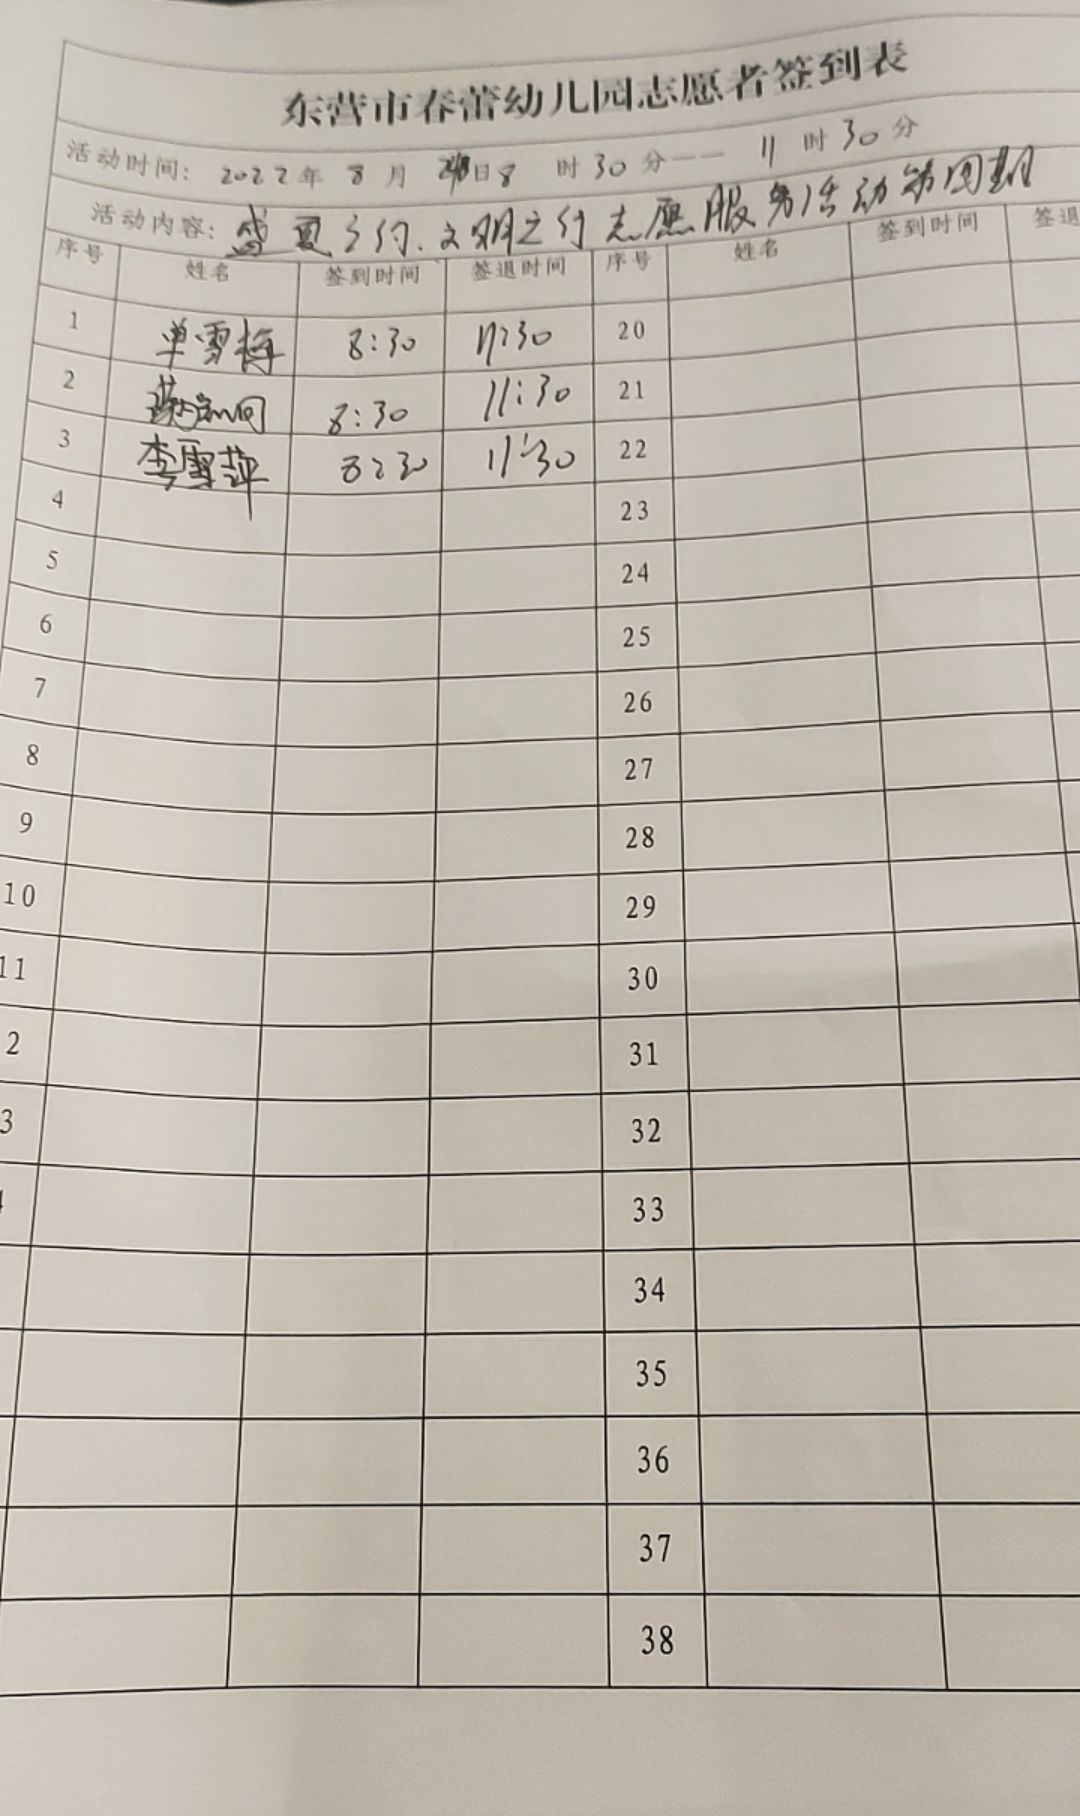 东营市春蕾幼儿园志愿者签到表
活动时间: 2022年 8月 日8 时30分-- 11 时30分
活动内容: 盛夏之约、文明之行志愿服务活动第四期
序号 姓名 签到时间 签退时间 序号 姓名 签到时间 签退
1 单雪梅 8:30 11:30 20
2 8:30 11:30 21
3 李雪萍 8:30 11:30 22
4 23
5 24
6 25
7 26
8 27
9 28
10 29
11 30
2 31
3 32
4 33
34
35
36
37
38